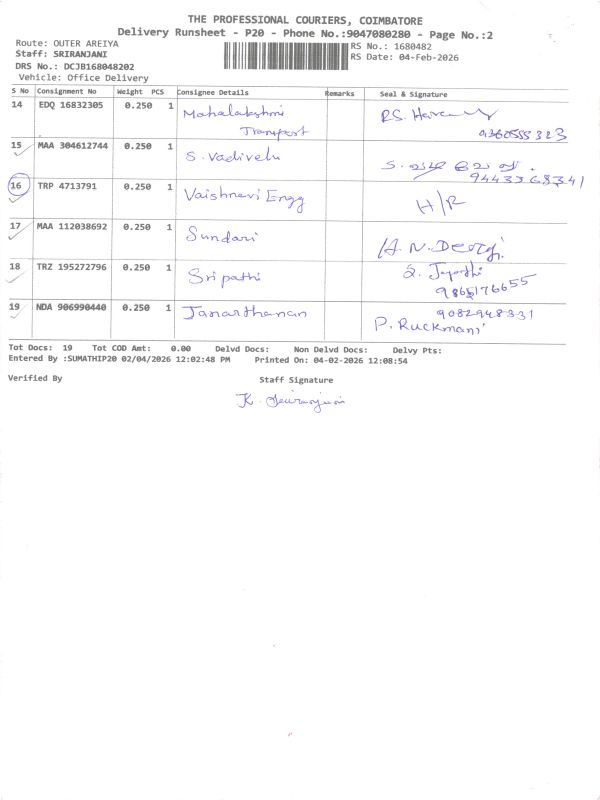 THE PROFESSIONAL COURIERS, COIMBATORE
Delivery Runsheet - P20 - Phone No.:9047080280 - Page No.:2
Route: OUTER AREIYA
RS No.: 1680482
Staff: SRIRANJANI
RS Date: 04-Feb-2026
DRS No.: DCJB168048202
Vehicle: Office Delivery
S No Consignment No Weight PCS Consignee Details Remarks Seal & Signature
14 EDQ 16832305 0.250 1 Mahalakshmi Transport RS. 9360555323
15 MAA 304612744 0.250 1 S. Vadivelu S. 9443368341
16 TRP 4713791 0.250 1 Vaishnavi Engg H/R
17 MAA 112038692 0.250 1 Sundari
18 TRZ 195272796 0.250 1 Sripathi 9865176655
19 NDA 906990440 0.250 1 Janarthanan 9082948331 P. Ruckmani
Tot Docs: 19 Tot COD Amt: 0.00 Delvd Docs: Non Delvd Docs: Delvy Pts:
Entered By :SUMATHIP20 02/04/2026 12:02:48 PM Printed On: 04-02-2026 12:08:54
Verified By Staff Signature